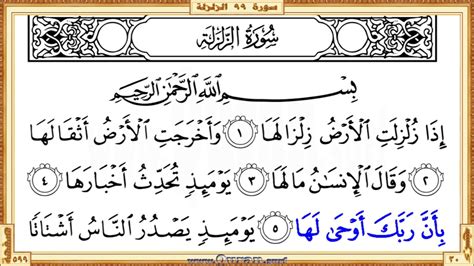 سورة ٩٩ الزلزلة
سُورَةُ الزَّلْزَلَةِ
بِسْمِ ٱللَّهِ ٱلرَّحْمَٰنِ ٱلرَّحِيمِ
إِذَا زُلْزِلَتِ ٱلْأَرْضُ زِلْزَالَهَا ١ وَأَخْرَجَتِ ٱلْأَرْضُ أَثْقَالَهَا
٢ وَقَالَ ٱلْإِنسَٰنُ مَا لَهَا ٣ يَوْمَئِذٍ تُحَدِّثُ أَخْبَارَهَا ٤
بِأَنَّ رَبَّكَ أَوْحَىٰ لَهَا ٥ يَوْمَئِذٍ يَصْدُرُ ٱلنَّاسُ أَشْتَاتًا
٥٩٩